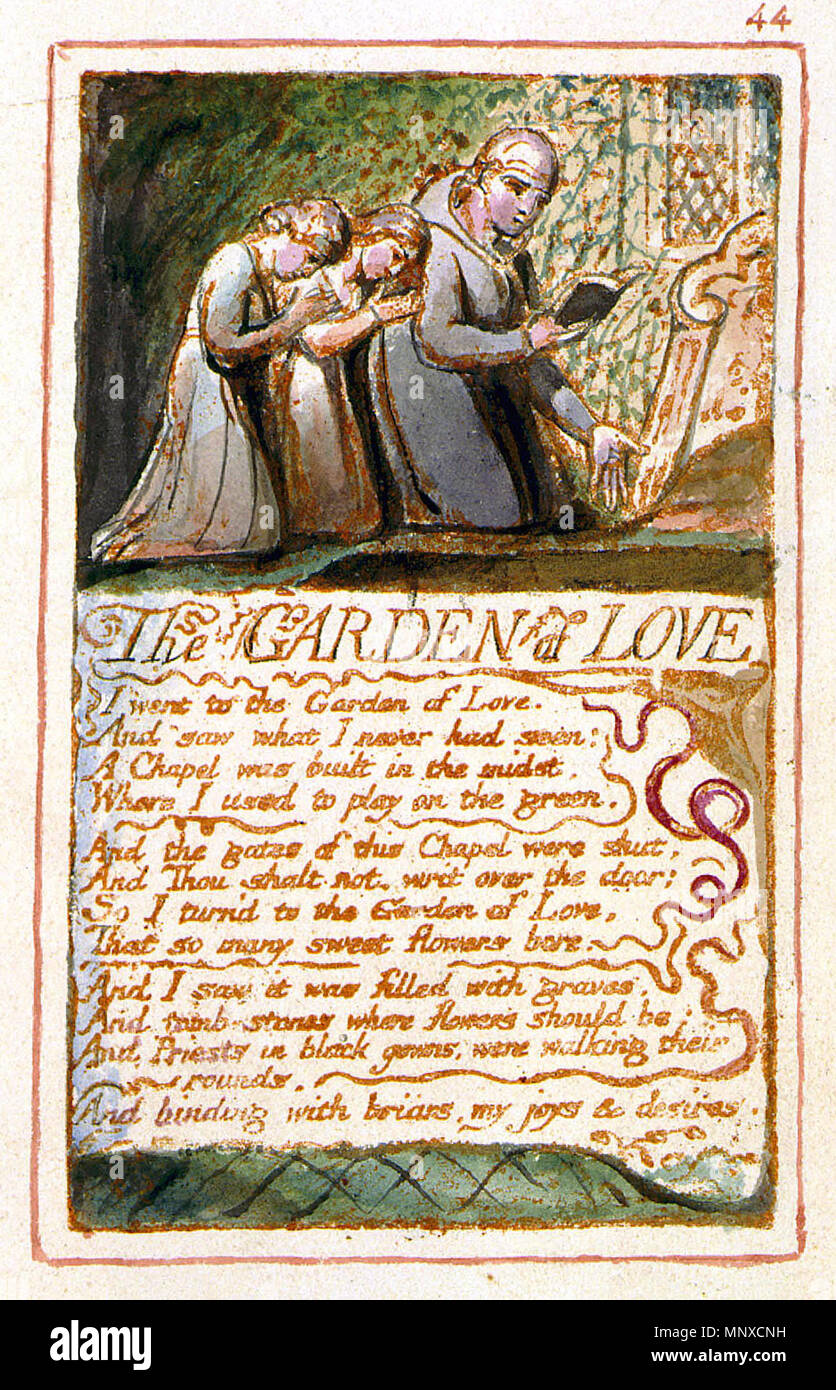 44
The GARDEN of LOVE
I went to the Garden of Love.
And saw what I never had seen:
A Chapel was built in the midst,
Where I used to play on the green.
And the gates of this Chapel were shut,
And Thou shalt not. writ over the door;
So I turn'd to the Garden of Love,
That so many sweet flowers bore.
And I saw it was filled with graves,
And tomb-stones where flowers should be:
And Priests in black gowns, were walking their
rounds,
And binding with briars, my joys & desires.
alamy
alamy
Image ID: MNXCNH
www.alamy.com